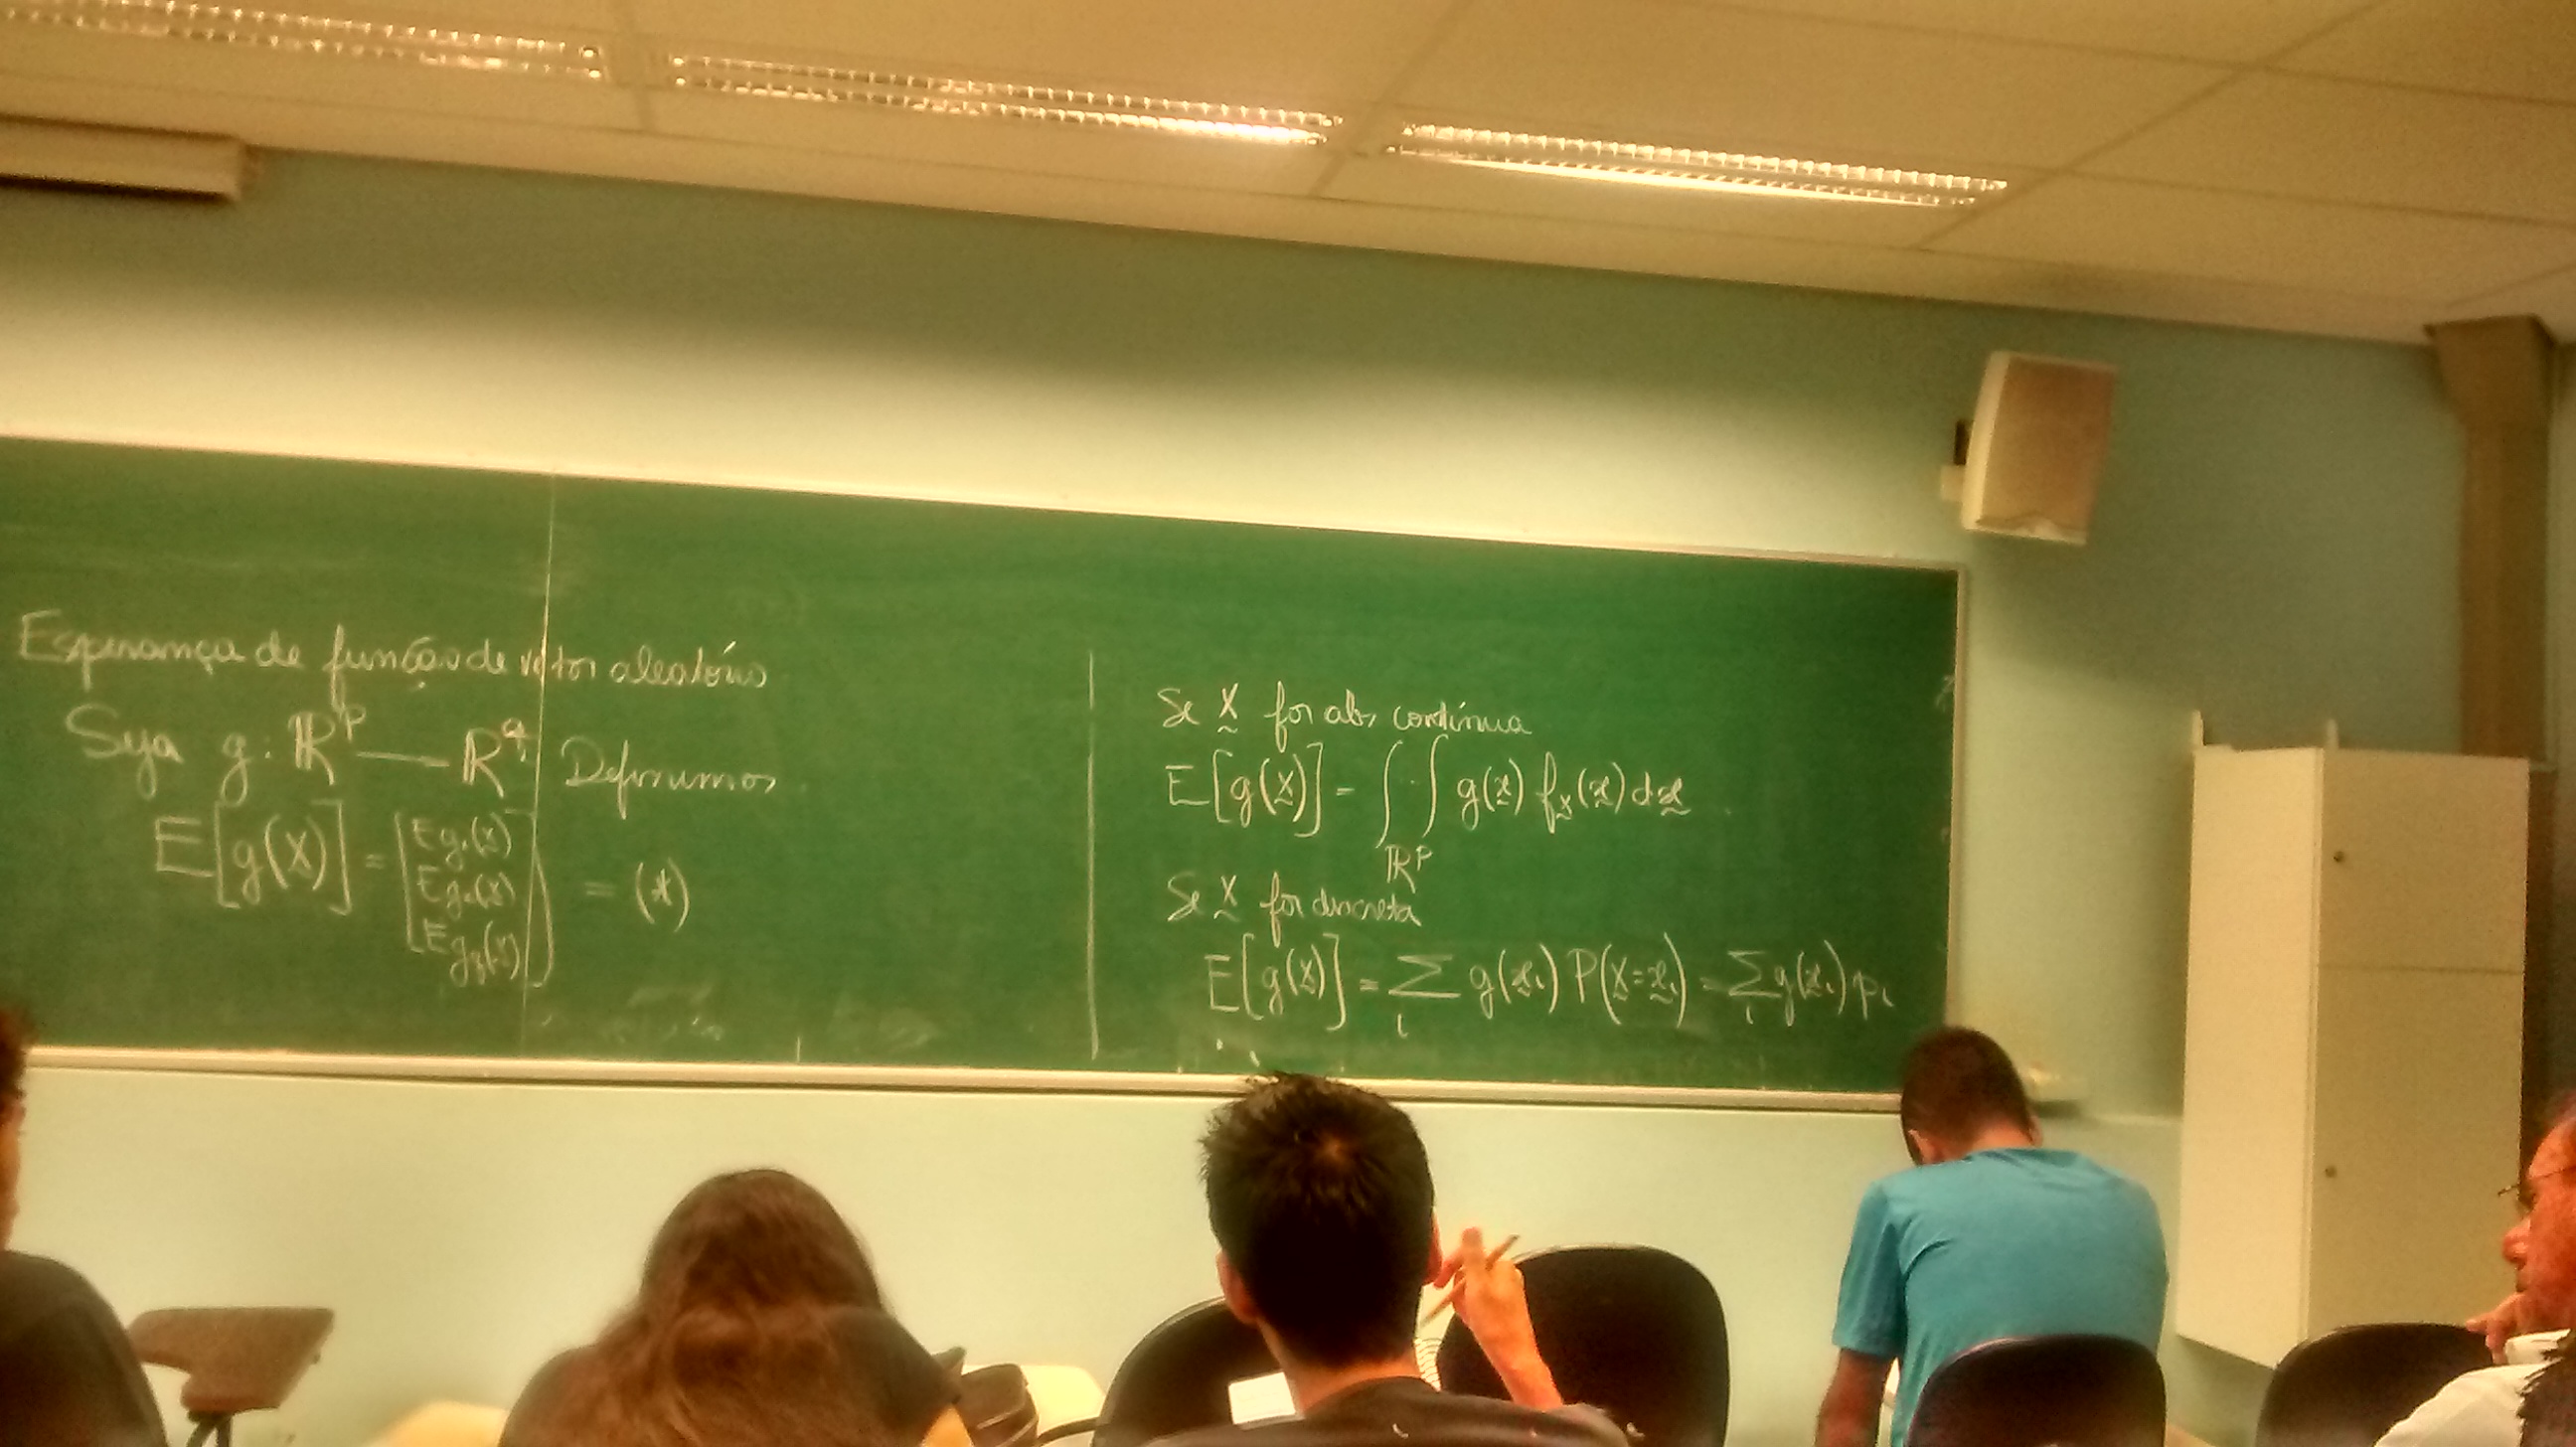 Esperança de função de vetor aleatório
Seja g: ℝᵖ — ℝ^q. Definimos
E[g(X)] = [Eg₁(X)
Eg₂(X)
Eg_q(X)] = (*)
Se X̰ for abs contínua
E[g(X̰)] = ∫··∫ g(x̰) f_X̰(x̰) dx̰
ℝᵖ
Se X̰ for discreta
E[g(X̰)] = Σ_i g(x̰_i) P(X̰=x̰_i) = Σ_i g(x̰_i) p_i